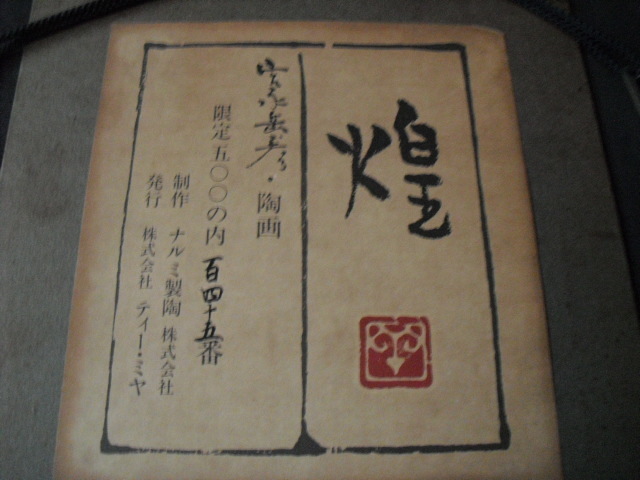 煌
陶画
限定五〇〇の内 百四十五番
制作 ナルミ製陶株式会社
発行 株式会社 ティー・ミヤ